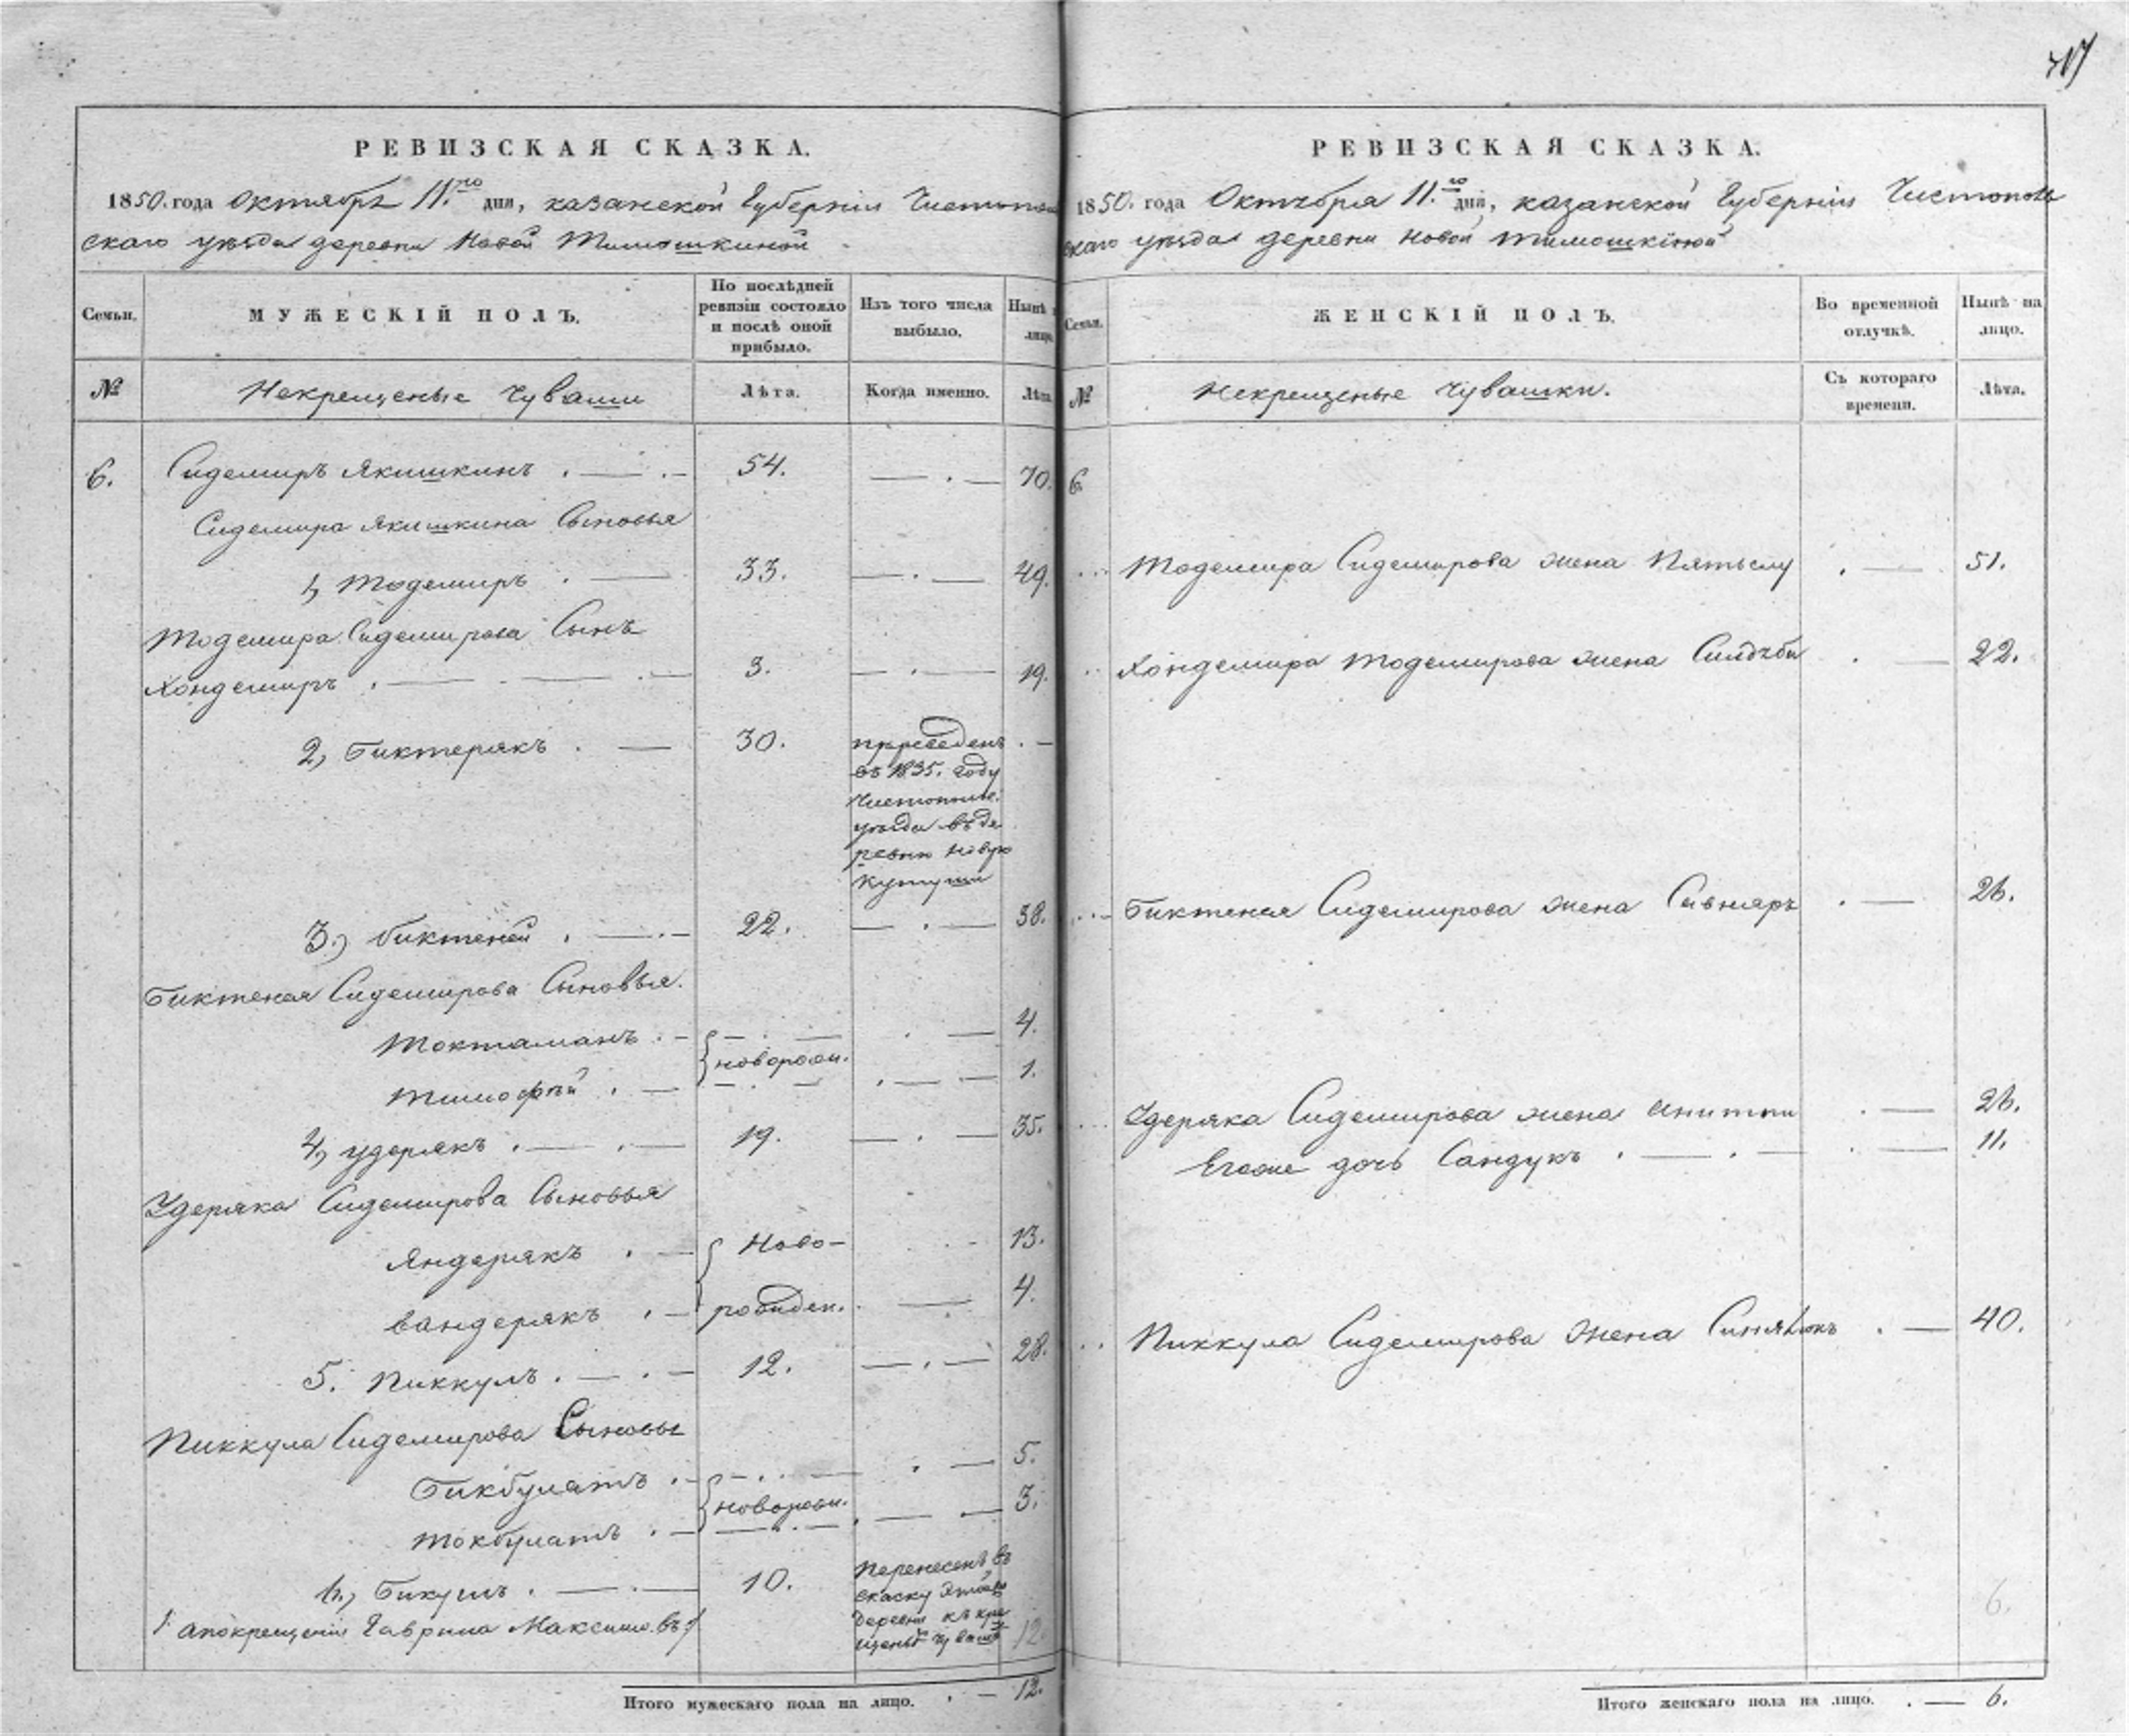 РЕВИЗСКАЯ СКАЗКА.
1850. года Октября 11.го дня, казанской Губернiи Чистополь
скаго уѣзда деревни Новой Тимошкиной
Семьи.
МУЖЕСКІЙ ПОЛЪ.
По послѣдней ревизіи состояло и послѣ оной прибыло.
Изъ того числа выбыло.
Нынѣ на лицо.
№
Некрещеные Чуваши
Лѣта.
Когда именно.
Лѣта.
6. Сидемиръ Якишкинъ 54. 70.
Сидемира Якишкина Сыновья
1, Тодемиръ 33. 49.
Тодемира Сидемирова Сынъ
Хондемиръ 3. 19.
2, Биктерякъ 30. переведенъ
въ 1835. году
Чистополь.
уѣзда въ де
ревню Новую
Кутуши
3., биктеней 22. 38.
Биктенея Сидемирова Сыновья.
Токтаманъ 4.
новорожд.
Тимофѣй 1.
4, удерякъ 19. 35.
Удеряка Сидемирова Сыновья
Яндерякъ Ново- 13.
вандерякъ рожден. 4.
5. Пиккулъ 12. 28.
Пиккула Сидемирова Сыновья
Бикбулатъ 5.
новорожд.
Токбулатъ 3.
6., Бикушъ 10. Перенесенъ въ
скаску этой
деревни къ кре
щеные чуваш
апокрещенiи Гаврила Максимовъ 12.
Итого мужескаго пола на лицо. 12.
РЕВИЗСКАЯ СКАЗКА.
1850. года Октября 11.го дня, казанской Губернiи Чистополь
скаго уѣзда деревни Новой Тимошкиной
Семьи.
ЖЕНСКІЙ ПОЛЪ.
Во временной отлучкѣ.
Нынѣ на лицо.
№
Некрещеные Чувашки.
Съ котораго времени.
Лѣта.
6.
Тодемира Сидемирова жена Пятьслу 51.
Хондемира Тодемирова жена 22.
Биктенея Сидемирова жена 26.
Удеряка Сидемирова жена 26.
Егоже дочь Сандукъ 11.
Пиккула Сидемирова жена 40.
6.
Итого женскаго пола на лицо. 6.